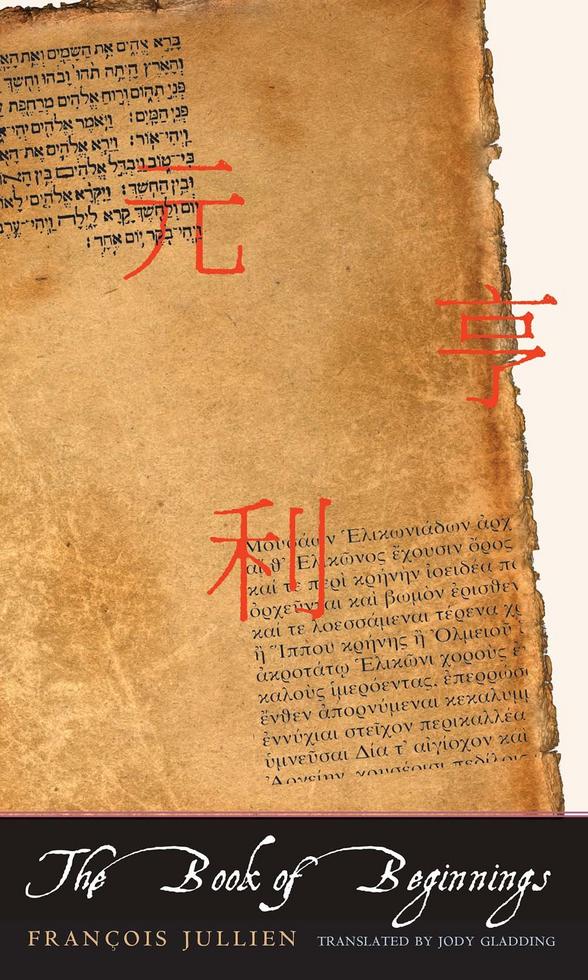 בָּרָא אֱלֹהִים אֵת הַשָּׁמַיִם וְאֵת הָאָ
וְהָאָרֶץ הָיְתָה תֹהוּ וָבֹהוּ וְחֹשֶׁךְ
פְּנֵי תְהוֹם וְרוּחַ אֱלֹהִים מְרַחֶפֶת
פְּנֵי הַמָּיִם׃ וַיֹּאמֶר אֱלֹהִים יְהִי־
וַיְהִי־אוֹר׃ וַיַּרְא אֱלֹהִים אֶת־הָא
כִּי־טוֹב וַיַּבְדֵּל אֱלֹהִים בֵּין הָא
וּבֵין הַחֹשֶׁךְ׃ וַיִּקְרָא אֱלֹהִים׀ לָאוֹ
יוֹם וְלַחֹשֶׁךְ קָרָא לָיְלָה וַיְהִי־עֶר
וַיְהִי־בֹקֶר יוֹם אֶחָד׃
元
亨
利
Μουσάων Ἑλικωνιάδων ἀρχ
αἵ θ᾽ Ἑλικῶνος ἔχουσιν ὄρος
καί τε περὶ κρήνην ἰοειδέα πο
ὀρχεῦνται καὶ βωμὸν ἐρισθεν
καί τε λοεσσάμεναι τέρενα χρ
ἢ Ἵππου κρήνης ἢ Ὀλμειοῦ
ἀκροτάτῳ Ἑλικῶνι χοροὺς ἐ
καλοὺς ἱμερόεντας, ἐπερρώσ
ἔνθεν ἀπορνύμεναι κεκαλυμμ
ἐννύχιαι στεῖχον περικαλλέα
ὑμνεῦσαι Δία τ᾽ αἰγίοχον καὶ
Ἀργείην, χρυσέοισι πεδίλοις
The Book of Beginnings
FRANÇOIS JULLIEN TRANSLATED BY JODY GLADDING